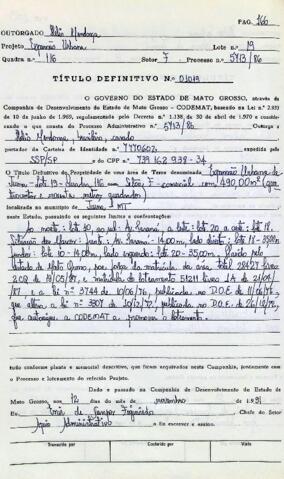 PAG. 166
OUTORGADO Hélio Mendonça
Projeto, Expansão Urbana Lote n.º 19
Quadra n.º 116 Setor F Processo n.º 5713/86
TÍTULO DEFINITIVO N.º 01019
O GOVERNO DO ESTADO DE MATO GROSSO, através da
Companhia de Desenvolvimento do Estado de Mato Grosso - CODEMAT, baseado na Lei n.º 2.953
de 10 de junho de 1969, regulamentada pelo Decreto n.º 1.138 de 30 de abril de 1970 e considerando
o que consta do Processo Administrativo n.º 5713/86 Outorga a
Hélio Mendonça, brasileiro, casado
portador da Carteira de Identidade n.º 7770602 expedida pela
SSP/SP e do CPF n.º 739 162 938-34
O Título Definitivo de Propriedade de uma área de Terra denominada Expansão Urbana de
- Lote 19 - Quadra 116 - Setor F - comercial com 490,00m² (quatrocentos
e noventa metros quadrados)
localizada no município de MT
neste Estado, passando os seguintes limites e confrontações:
ao norte: lote 20, ao sul: Av. Paraná, a este: lote 20, a oeste: lote 18.
frente: Av. Paraná - 14,00m, lado direito: lote 18 - 35,00m
fundos: lote 10 - 14,00m, lado esquerdo: lote 20 - 35,00m.
Estado de Mato Grosso, da matrícula da área total 28427 livro
e matrícula do loteamento 51211 livro
e a lei nº 3744 de 10/06/76, publicada no D.O.E. de 11/06/76
que altera a lei nº 3307 de publicada no D.O.E. de
que autoriza a CODEMAT a promover o loteamento.
tudo conforme planta e memorial descritivo, que ficam arquivados nesta Companhia, juntamente com
o Processo e loteamento do referido Projeto.
Dada e passada na Companhia de Desenvolvimento do Estado de
Mato Grosso, aos 12 dias do mês de novembro de 1.991
Eu, de Campos Figueiredo Chefe do Setor
Apoio Administrativo a fiz escrever e assino.
Transcrito por Conferido por Visto